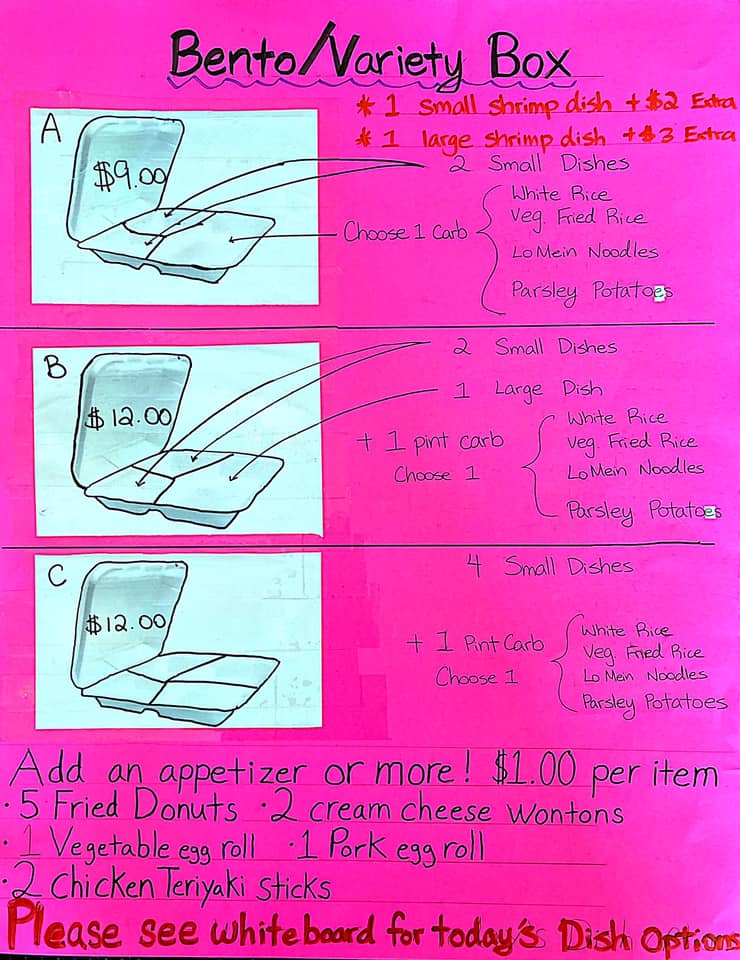 Bento/Variety Box
* 1 small shrimp dish + $2 Extra
* 1 large shrimp dish + $3 Extra
A
$9.00
2 Small Dishes
Choose 1 Carb
White Rice
Veg. Fried Rice
Lo Mein Noodles
Parsley Potatoes
B
$12.00
2 Small Dishes
1 Large Dish
+ 1 pint carb
Choose 1
White Rice
Veg. Fried Rice
Lo Mein Noodles
Parsley Potatoes
C
$12.00
4 Small Dishes
+ 1 Pint Carb
Choose 1
White Rice
Veg. Fried Rice
Lo Mein Noodles
Parsley Potatoes
Add an appetizer or more! $1.00 per item
· 5 Fried Donuts · 2 cream cheese wontons
· 1 Vegetable egg roll · 1 Pork egg roll
· 2 Chicken Teriyaki Sticks
Please see whiteboard for today's Dish Options